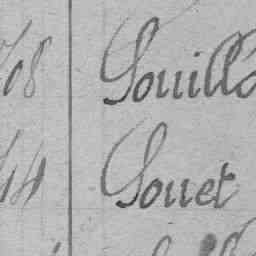 708 Souill
44 Souet